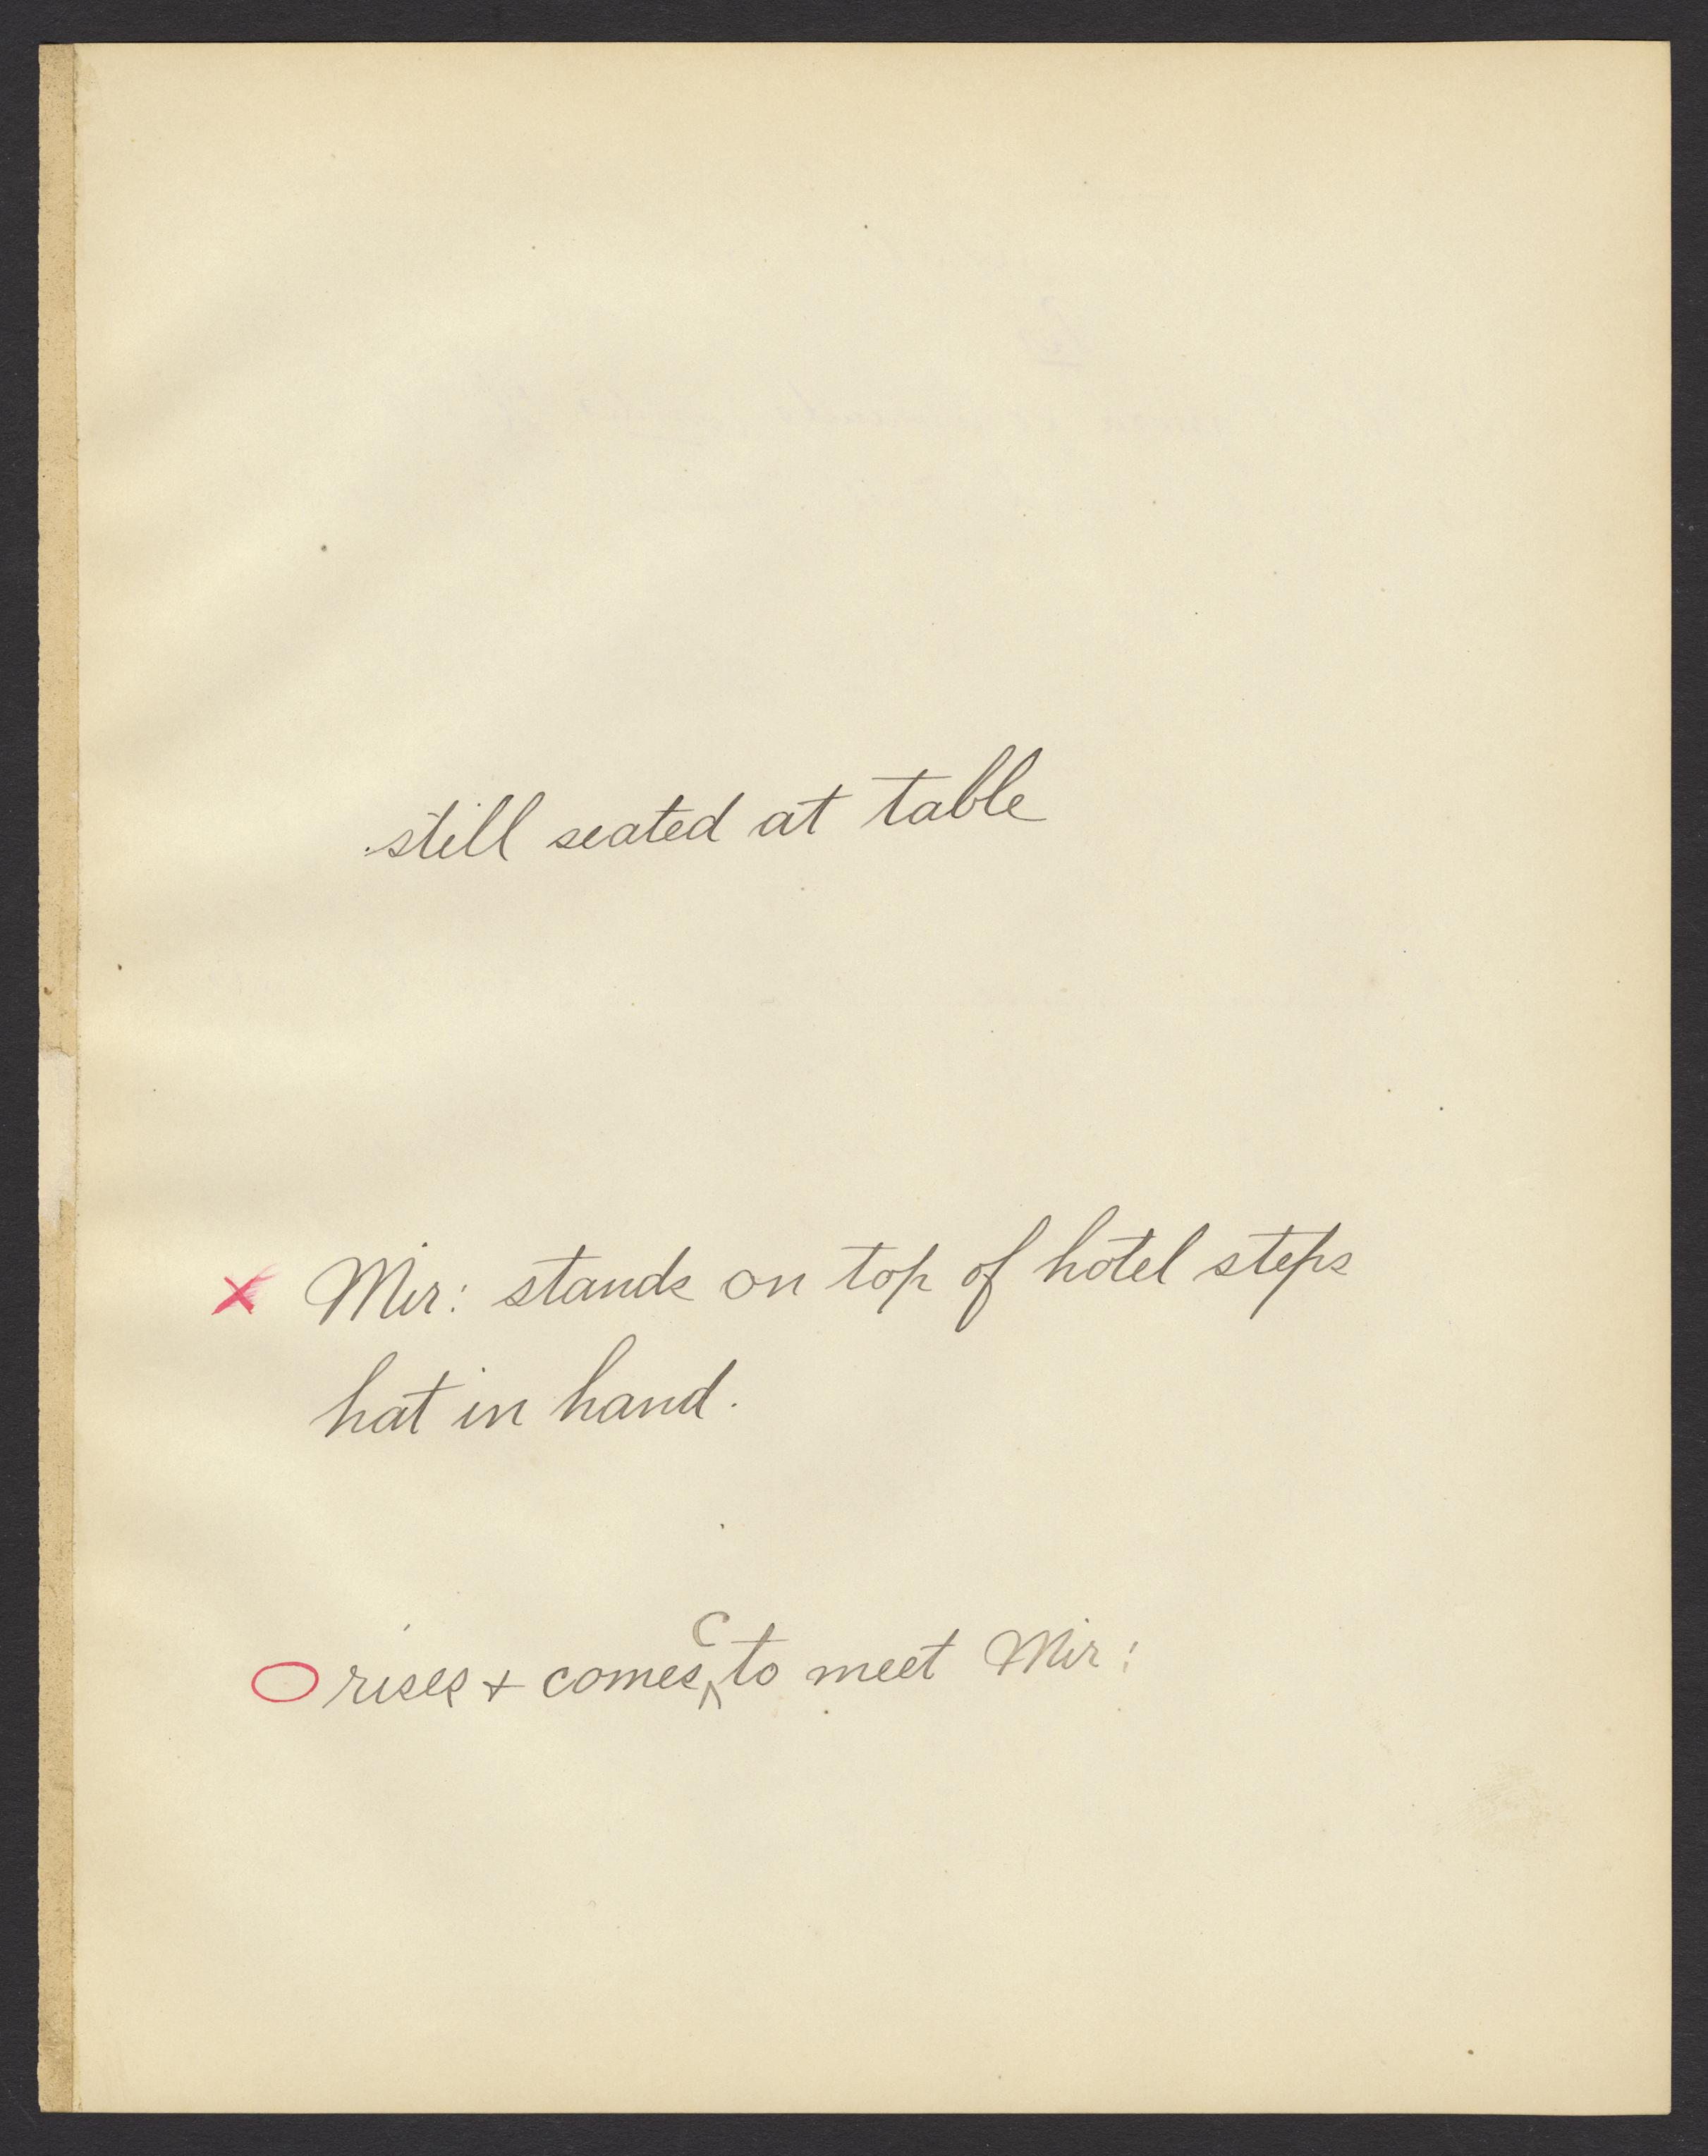 still seated at table
x Mir: stands on top of hotel steps
hat in hand.
O rises + comes C to meet Mir: